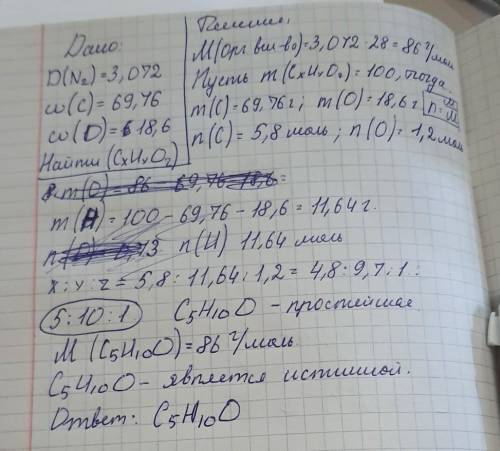 Дано:
D(N₂)=3,072
ω(C)=69,76
ω(O)=18,6
Найти (CxHyOz)
Решение:
M(орг вещ-во)=3,072·28=86 г/моль
Пусть m(CxHyOz)=100, тогда
m(C)=69,76г; m(O)=18,6г n=m/M
n(C)=5,8моль; n(O)=1,2моль
m(O)=86-69,76-18,6=
m(H)=100-69,76-18,6=11,64г.
n(H) 11,64 моль
x:y:z=5,8:11,64:1,2=4,8:9,7:1:
5:10:1 C₅H₁₀O - простейшая
M(C₅H₁₀O)=86 г/моль
C₅H₁₀O- является истиной.
Ответ: C₅H₁₀O